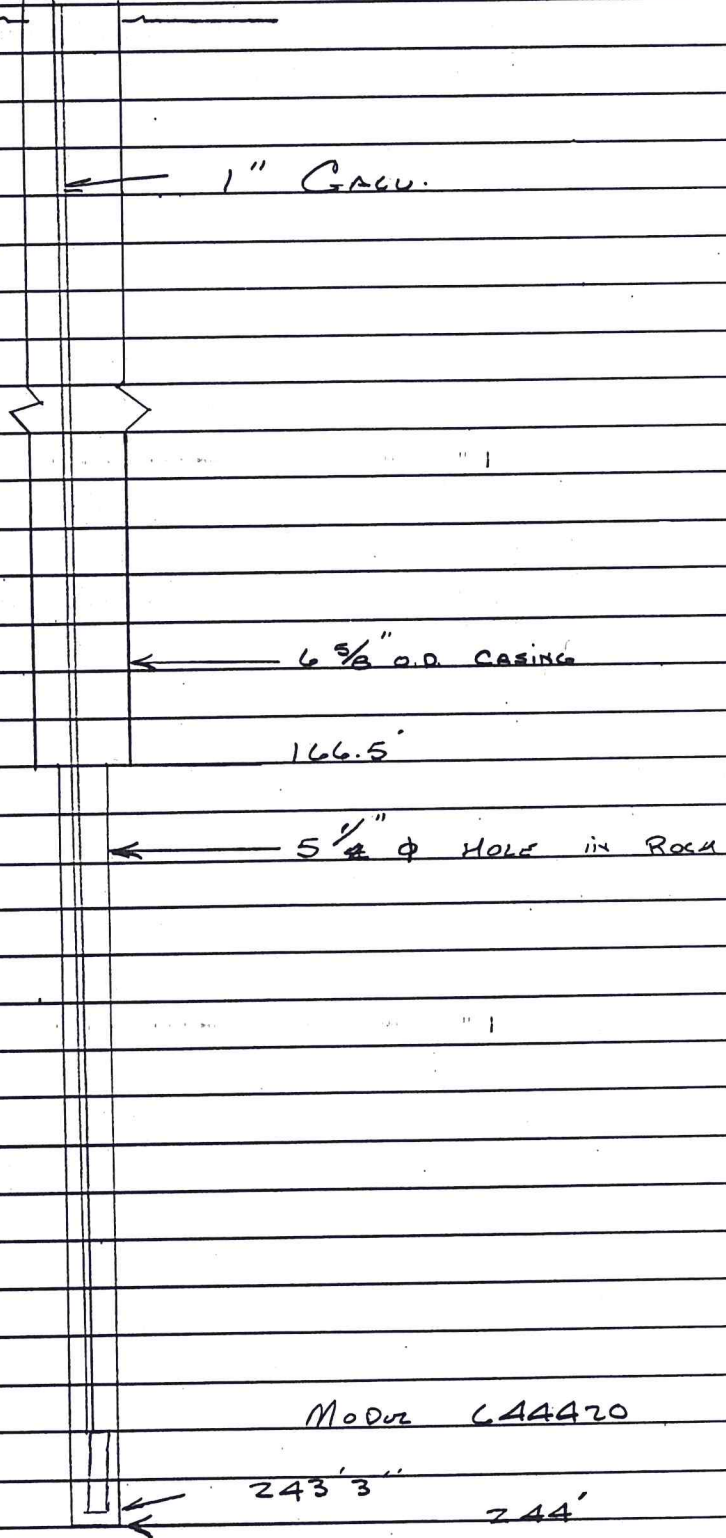 1" GALV.
6 5/8" O.D. CASING
166.5'
5 1/4" φ HOLE in ROCK
MODEL 644420
243'3"
244'